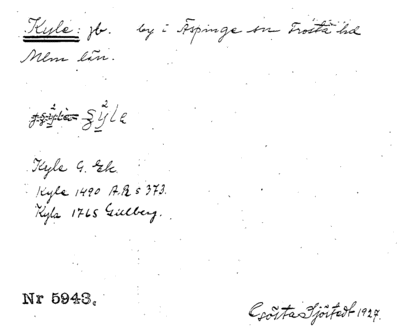 Kyle: gb. by i Äspinge sn Frosta hd
Mlm län.
Kyle G. Ek
Kyle 1490 A.R s 373.
Kyla 1765 Gillberg.
Nr 5943.
Gösta Sjöstedt 1927.